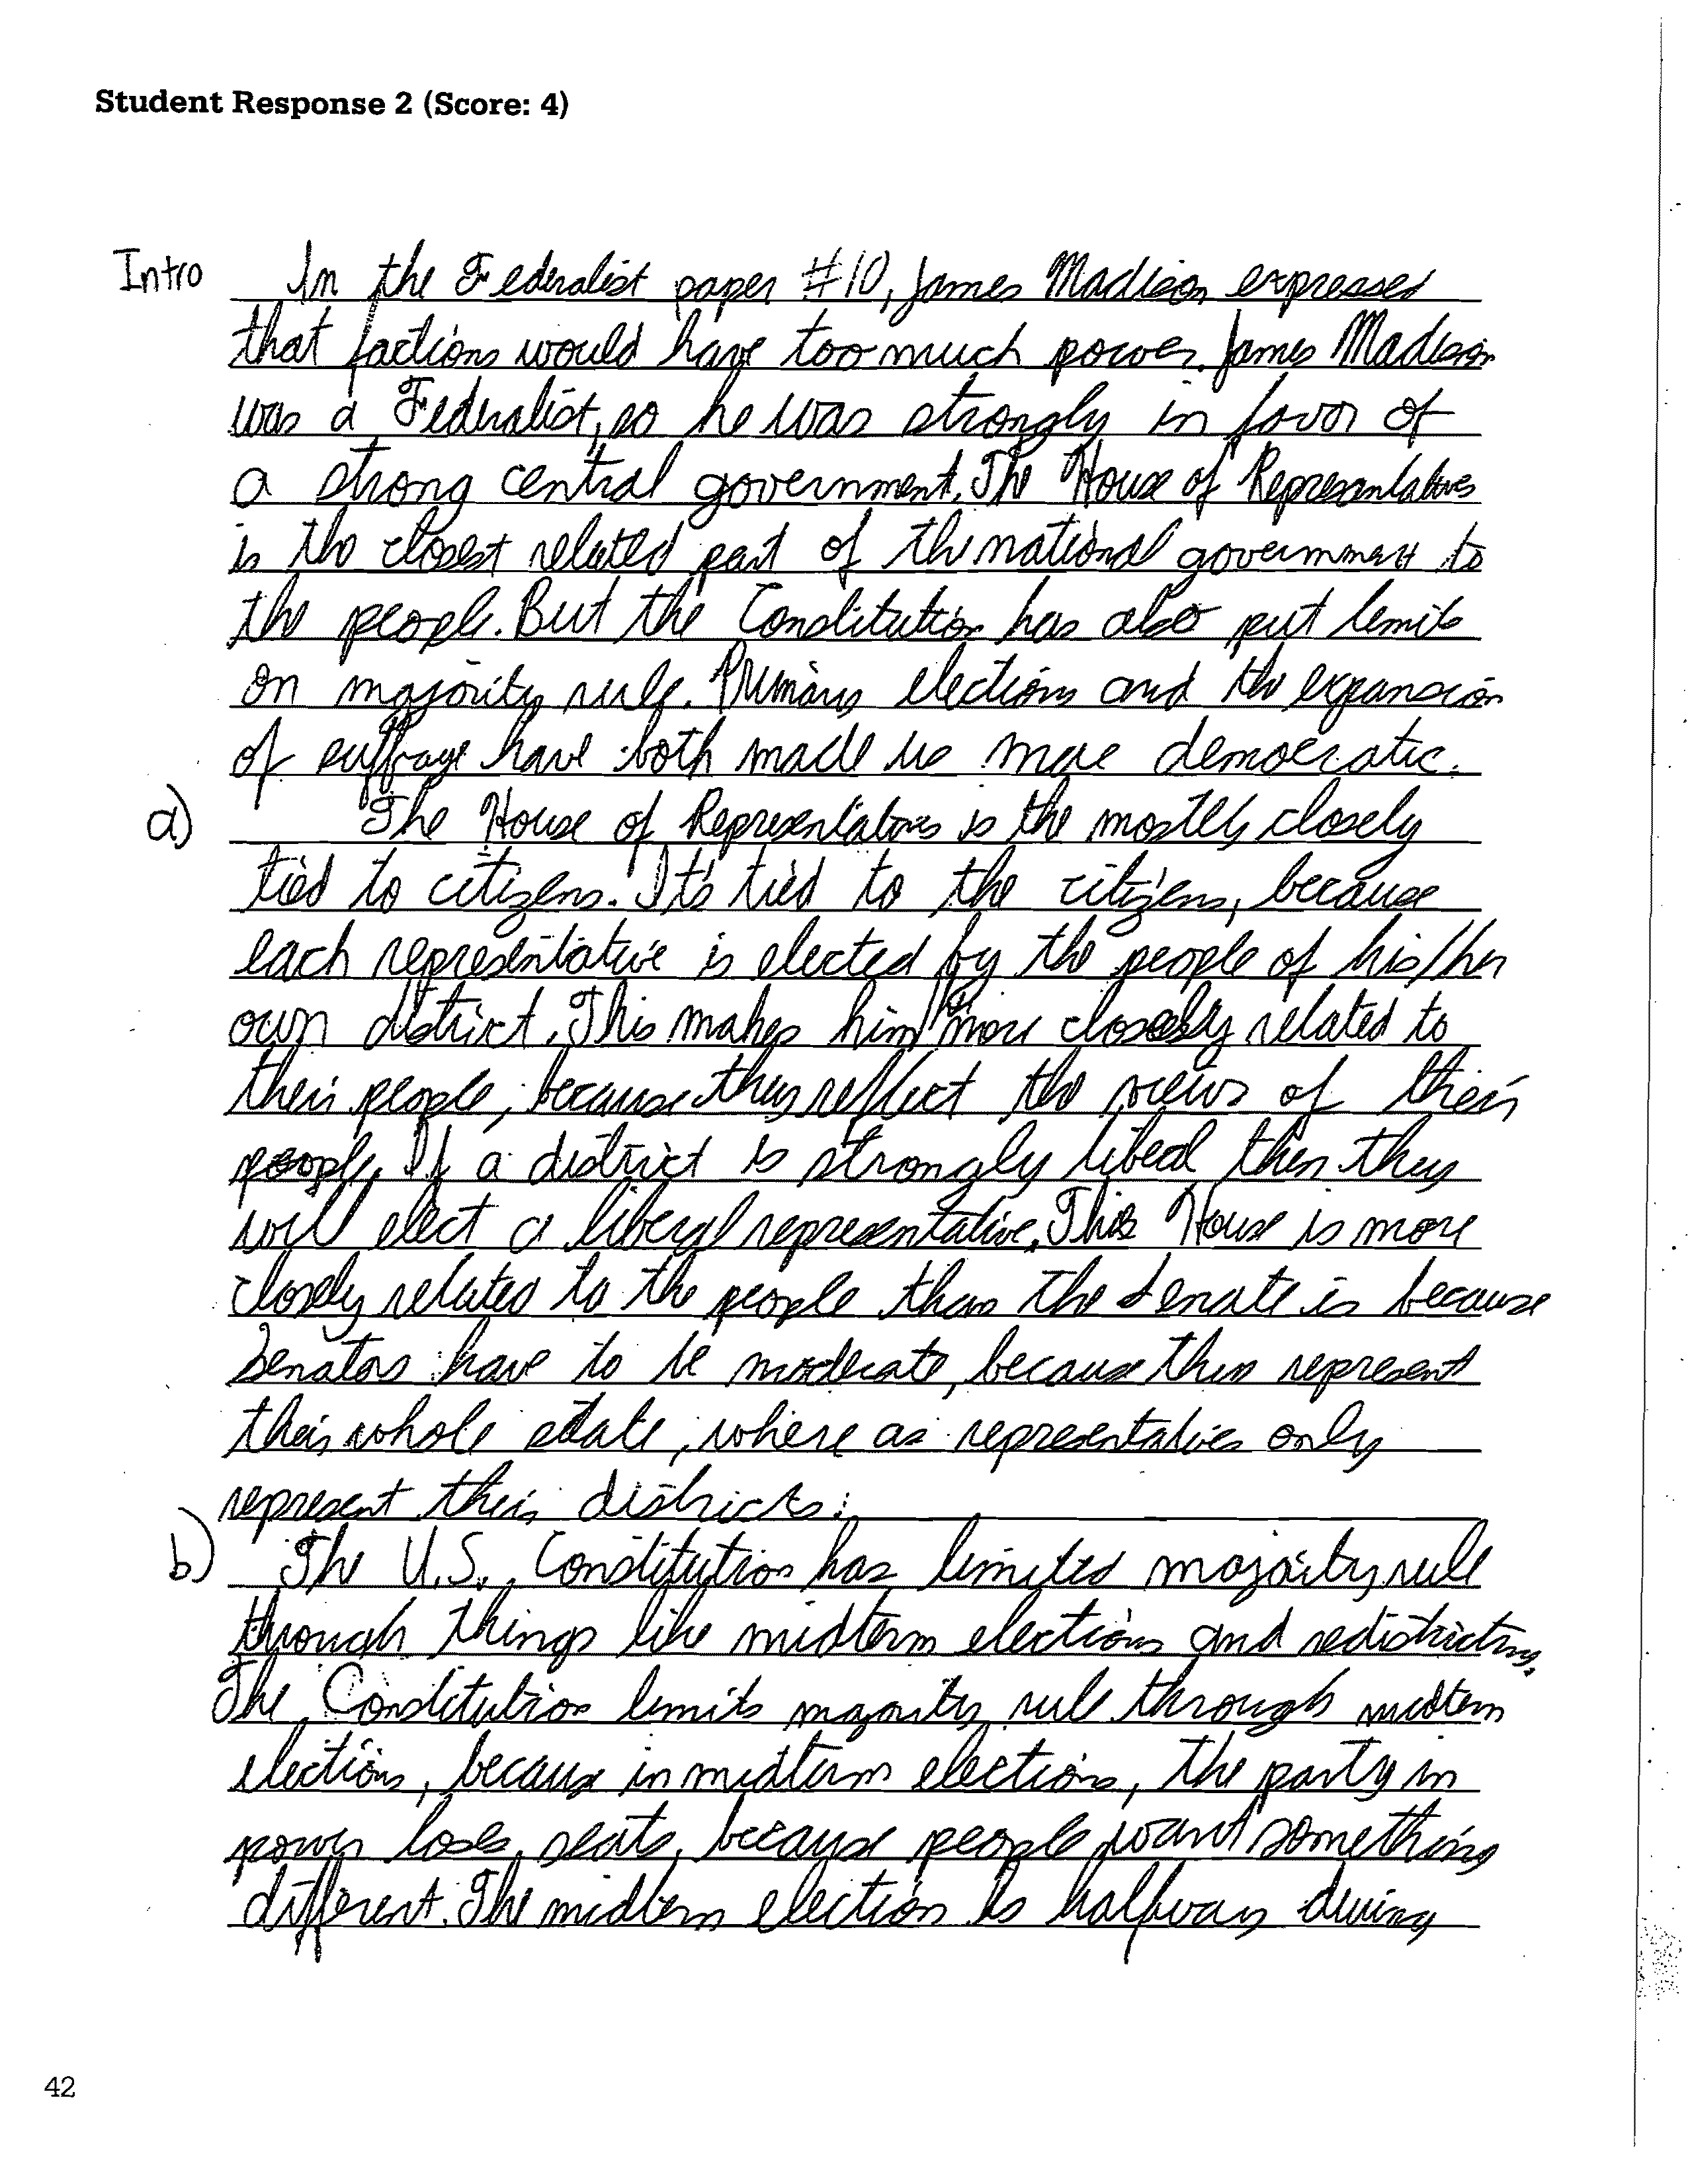 Student Response 2 (Score: 4)
Intro In the Federalist paper #10, James Madison expressed
that factions would have too much power. James Madison
was a Federalist, so he was strongly in favor of
a strong central government. The House of Representatives
is the closest related part of the national government to
the people. But the Constitution has also put limits
on majority rule. Primary elections and the expansion
of suffrage have both made us more democratic.
a) The House of Representatives is the mostly closely
tied to citizens. It's tied to the citizens, because
each representative is elected by the people of his/her
own district. This makes him/her more closely related to
their people, because they reflect the views of their
people. If a district is strongly liberal then they
will elect a liberal representative. This House is more
closely related to the people than the Senate is because
Senators have to be moderate, because they represent
their whole state, where as representatives only
represent their districts.
b) The U.S. Constitution has limited majority rule
through things like midterm elections and redistricting.
The Constitution limits majority rule through midterm
elections, because in midterm elections, the party in
power loses seats, because people want something
different. The midterm election is halfway during
42